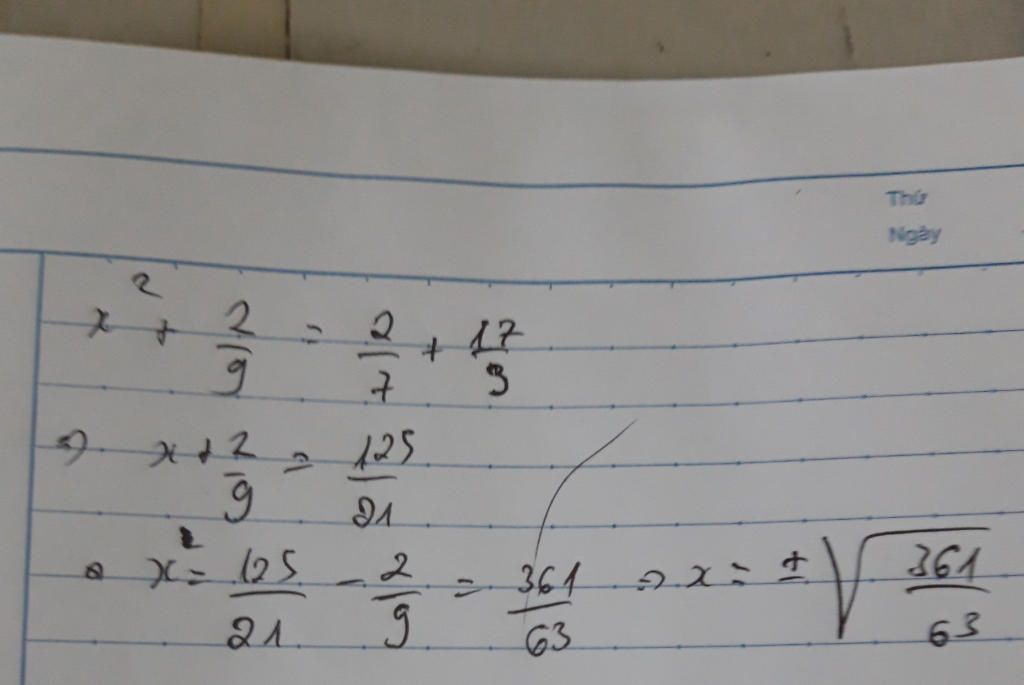 Thứ
Ngày
x² + 2/9 = 2/7 + 17/3
=> x + 2/9 = 125/21
=> x² = 125/21 - 2/9 = 361/63 => x = ± √(361/63)